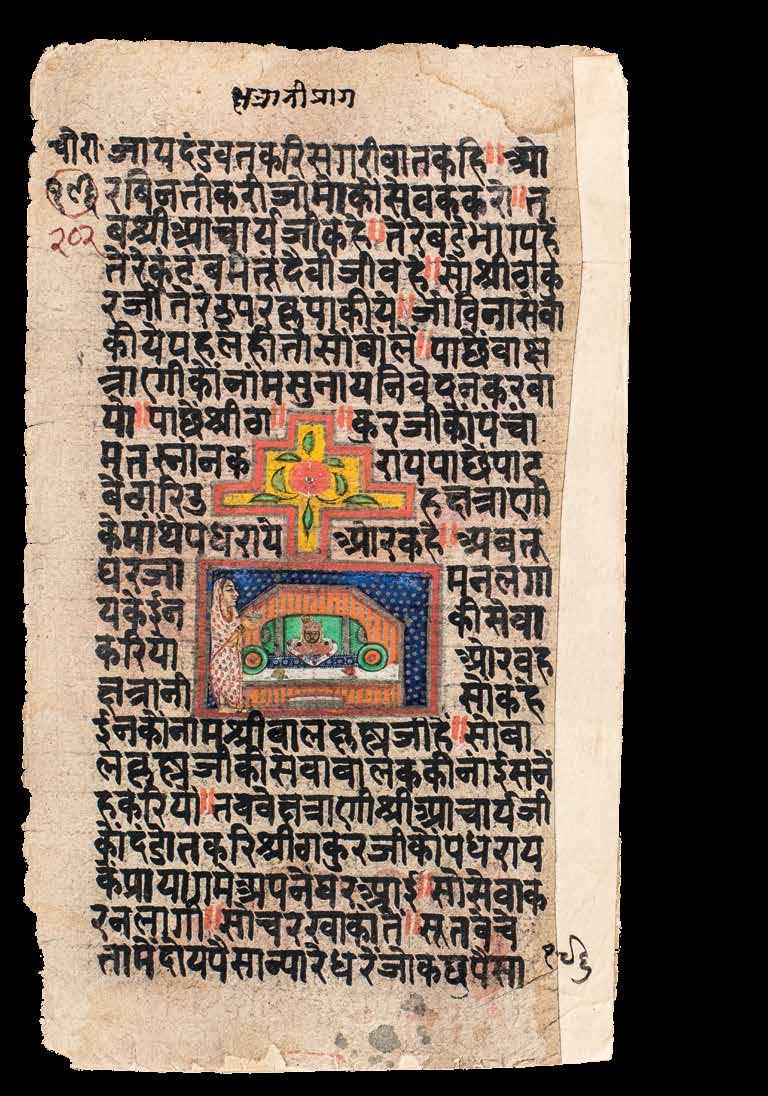 क्षत्रानीप्राग
चौरा जायदंडवतकरिसगरीबातकहि॥ओ
रबिनतीकरीजोमोकोसेवककरो॥त
२०२ बश्रीआचार्यजीकहे॥तेरेबडेभाग्यहे
तेरेकुटंबमेतूदैवीजीवहे॥सोश्रीठाकु
रजीतेरेउपरकृपाकीये॥जोविनासेवा
कीयेपहलेहीतोसोबोले॥पाछेवाक्ष
त्राणीकोनांमसुनायनिवेदनकरवा
यो॥पाछेश्रीठा॥ ॥कुरजीकोपंचा
मृतस्नानक रायपाछेपाट
बेठारिउ हक्षत्राणी
केमांथेपधराये ओरकहे॥अबतू
घरजा मनलगा
यकेईन कीसेवा
करियो ओरवह
क्षत्रानी सोकहे
ईनकोनामश्रीबालकृष्णजीहे॥सोबा
लकृष्णजीकीसेवाबालककीनाईसने
हकरियो॥तबवेक्षत्राणीश्रीआचार्यजी
कोदंडोतकरिश्रीठाकुरजीकोपधराय
केप्रायागमेअपनेघरआई॥सोसेवाक
रनलागी॥सोचरखाकाते॥सूतबेचे
तामेदोयपैसान्यारेधरेजोकछुपैसा